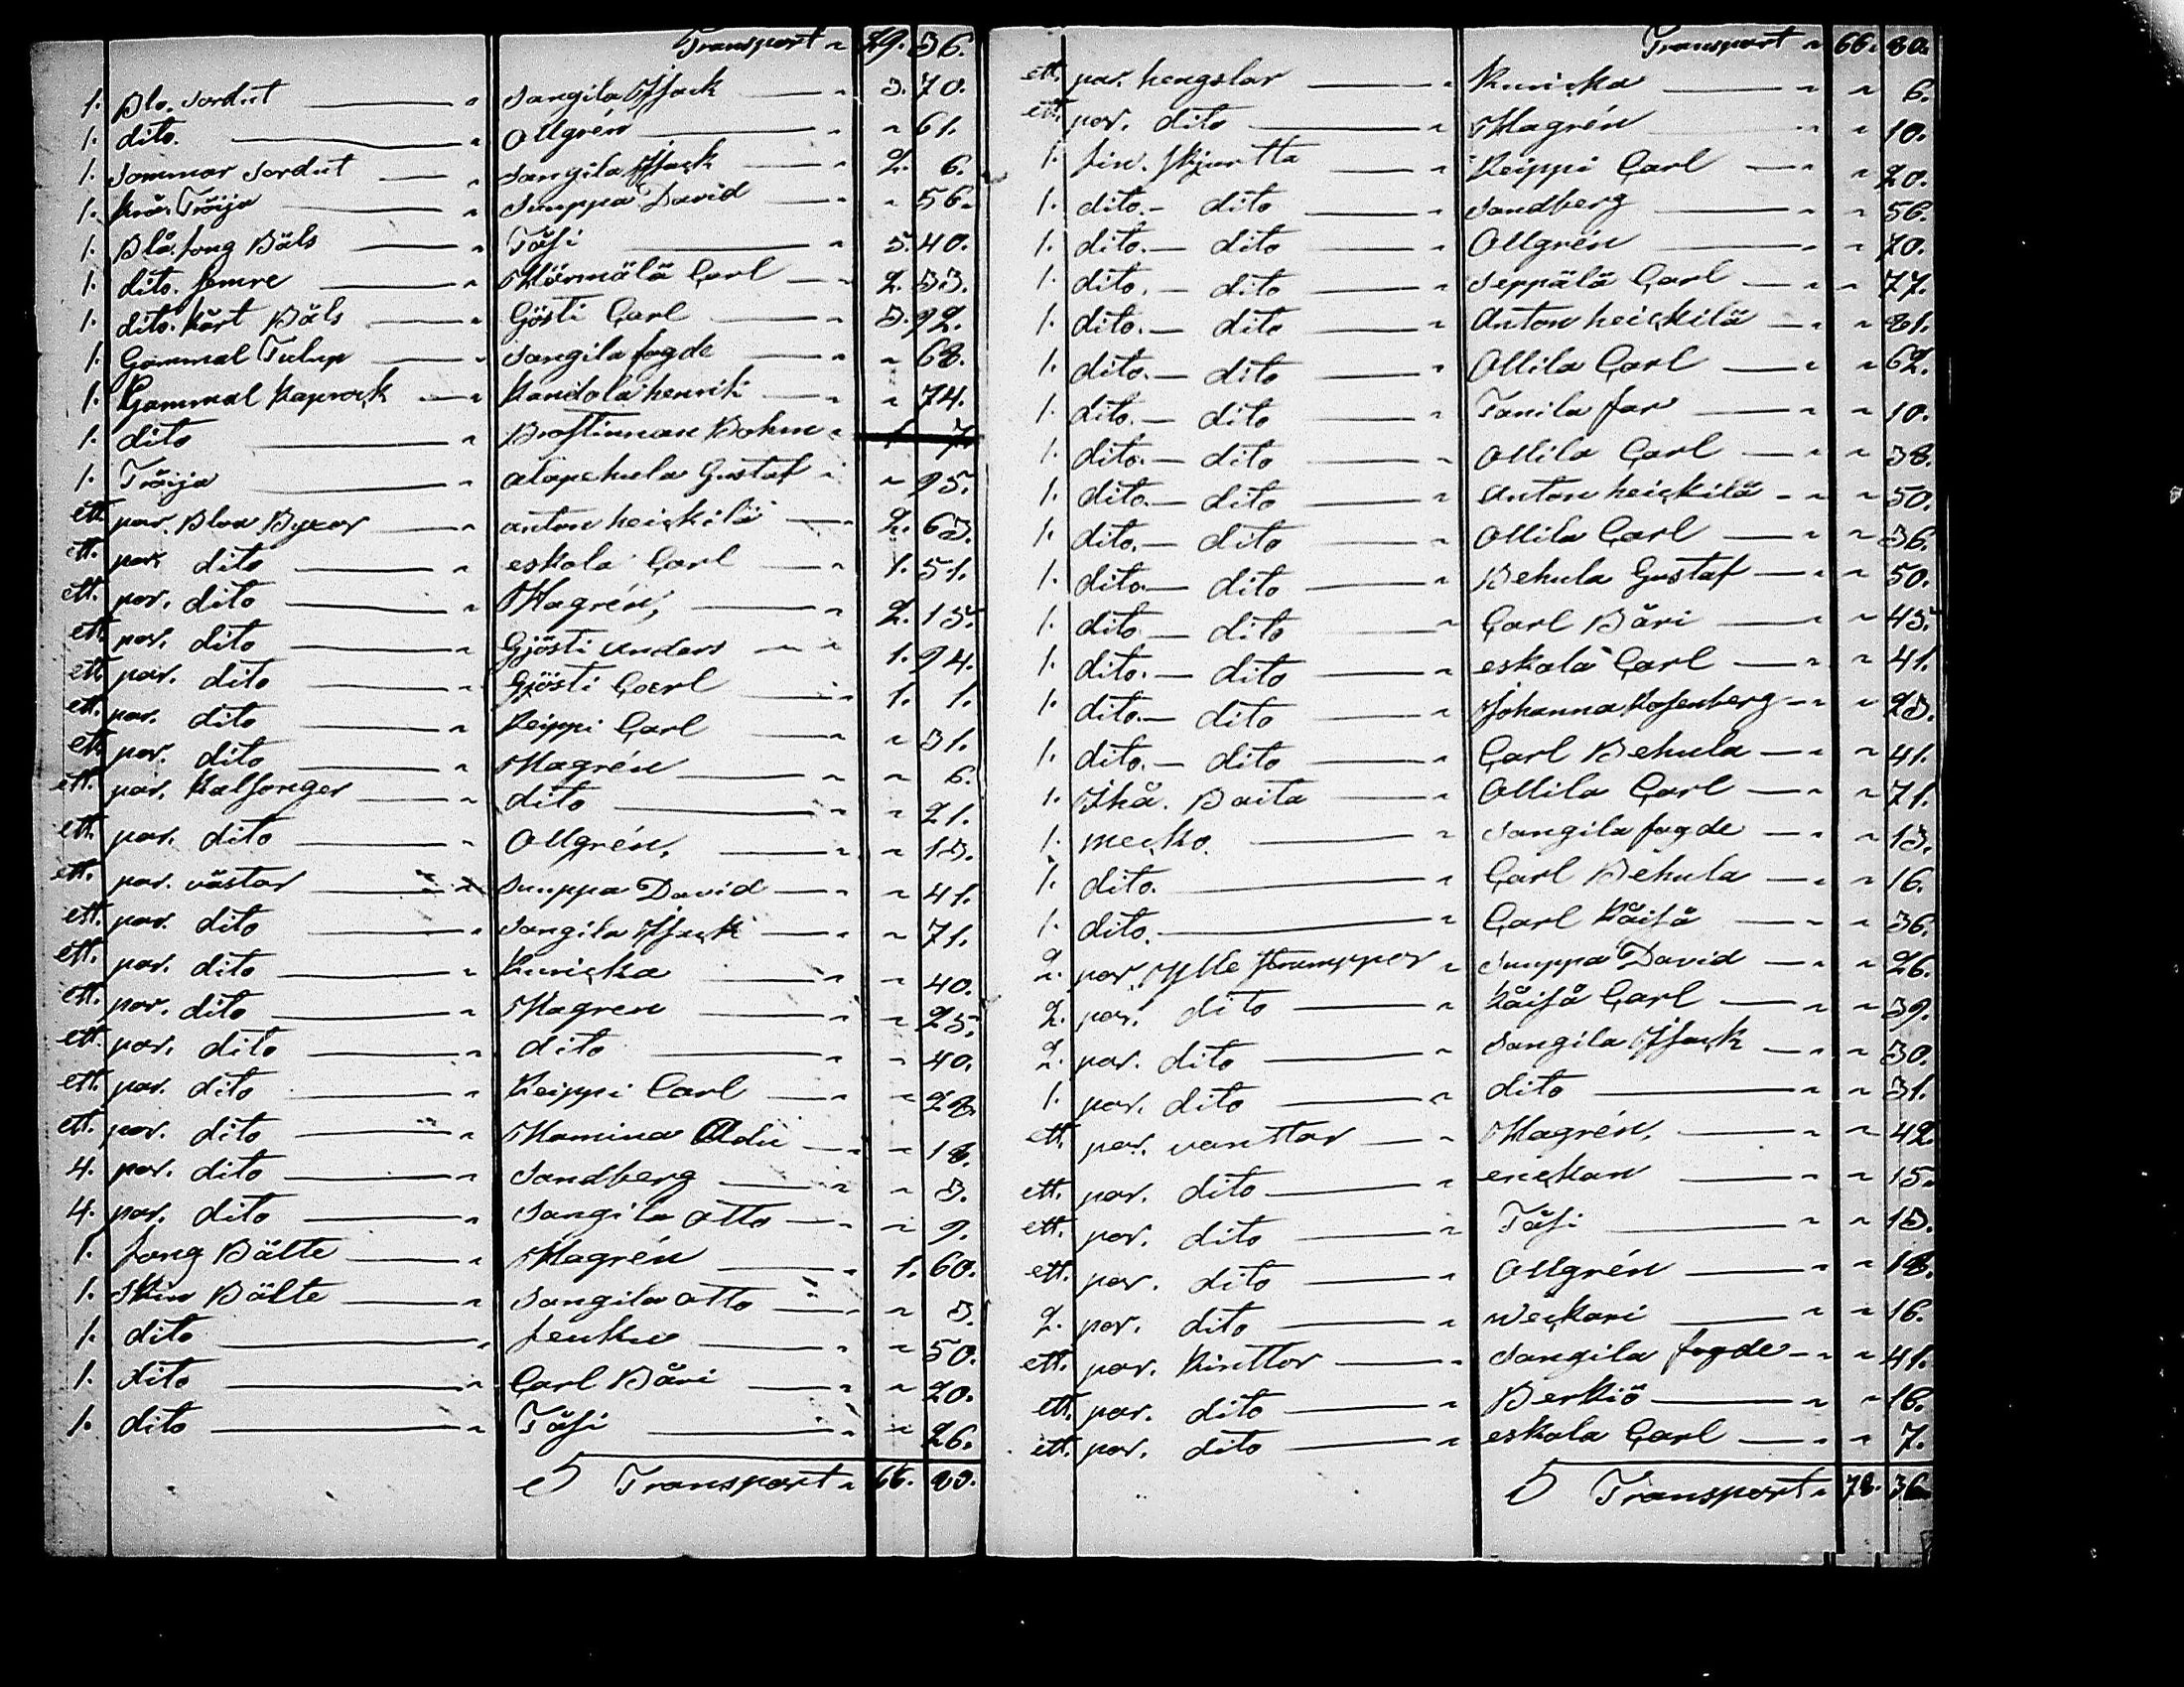 Transport " 29. 36.
1. Blo. Sordut " Sangila Issack " 3. 70.
1. dito. " Ollgrén " " 61.
1. Sommar Sordut " Sangila Issack " 2. 6.
1. Krå Tröija " Suuppa David " " 56.
1. Blå. Jong Bäls " Täsi " 5. 40.
1. dito. semre " Härmälä Carl " 2. 33.
1. dito. kårt Bäls " Gjösti Carl " 3. 92.
1. Gammal Tulup " Sangila fogde " " 68.
1. Gammal Kaprock " Kandola henrik " " 74.
1. dito " Brostinnan Bohm " 1 7
1. Tröija " alapehula Gustaf " " 95.
ett. par. Bloa Byxor " anton heickilä " 2. 63.
ett. par. dito " eskola Carl " 1. 51.
ett. par. dito " Hagrén, " 2. 15.
ett. par. dito " Gjösti Anders " " 1. 94.
ett. par. dito " Gjösti Carl " 1. 1.
ett. par. dito " Keippi Carl " " 31.
ett. par. dito " Hagrén " " 6.
ett. par. Kalsonger " dito " " 21.
ett. par. dito " Ollgrén. " " 13.
ett. par. västar " Suuppa David " " 41.
ett. par. dito " Sangila Issack " " 71.
ett. par. dito " Kuricka " " 40.
ett. par. dito " Hagren " " 25.
ett. par. dito " dito " " 40.
ett. par. dito " Keippi Carl " " 28.
ett. par. dito " Hamina Adii " " 18.
4. par. dito " Sandberg " " 3.
4. par. dito " Sangila Otto " " 9.
1. Jong Bälte " Hagrén " 1. 60.
1. Skin Bälte " Sangila Otto " " 3.
1. dito " Jenku " " 50.
1. dito " Carl Bäri " " 20.
1. dito " Täsi " " 26.
Transport " 66. 80.
Transport " 66. 80.
ett. par. hengslar " Kuricka " " 6.
ett. par. dito " Hagrén " " 10.
1. Lin. Skjortta " Keippi Carl " 20.
1. dito. – dito " Sandberg " " 56.
1. dito. – dito " Ollgrén " 70.
1. dito. – dito " Seppälä Carl " " 77.
1. dito. – dito " Anton heickilä " " 81.
1. dito. – dito " Ollila Carl " " 62.
1. dito. – dito " Tanila far " " 10.
1. dito. – dito " Ollila Carl " " 38.
1. dito. – dito " Anton heickilä " " 50.
1. dito. – dito " Ollila Carl " " 36.
1. dito – dito " Behula Gustaf " " 50.
1. dito – dito " Carl Bäri " " 45.
1. dito. – dito " eskola Carl " " 41.
1. dito. – dito " Johanna Rosenberg " " 23.
1. dito. – dito " Carl Behula " " 41.
1. Skå. Baita " Ollila Carl " " 71.
1. mecko. " Sangila fogde " " 13.
1. dito. " Carl Behula " " 16.
1. dito. " Carl Käisä " 36.
2. par. Ylle strumppor " Suuppa David " " 26.
2. par. dito " Käisä Carl " " 39.
2. par. dito " Sangila Issack " " 30.
1. par. dito " dito " " 31.
ett. par. vanttar " Hagrén. " " 42.
ett. par. dito " enckan " " 15.
ett. par. dito " Täsi " " 13.
ett. par. dito " Ollgrén " " 18.
2. par. dito " Weckari " " 16.
ett. par. Kinttor " Sangila fogde " " 41.
ett. par. dito " Berkiö " " 16.
ett. par. dito " eskola Carl " " 7.
Transport " 78. 36